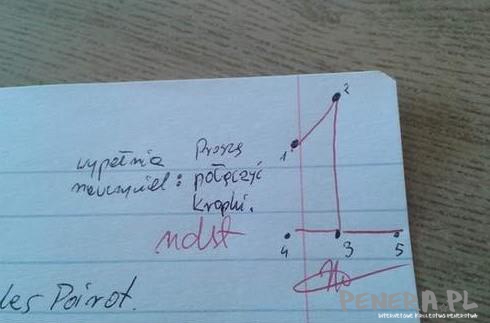 wypełnia
nauczyciel:
Proszę
połączyć
kropki.
ndst
1
2
4
3
5
les Poirot.
PENERA.PL
INTERNETOWE KRÓLESTWO PENERSTWA